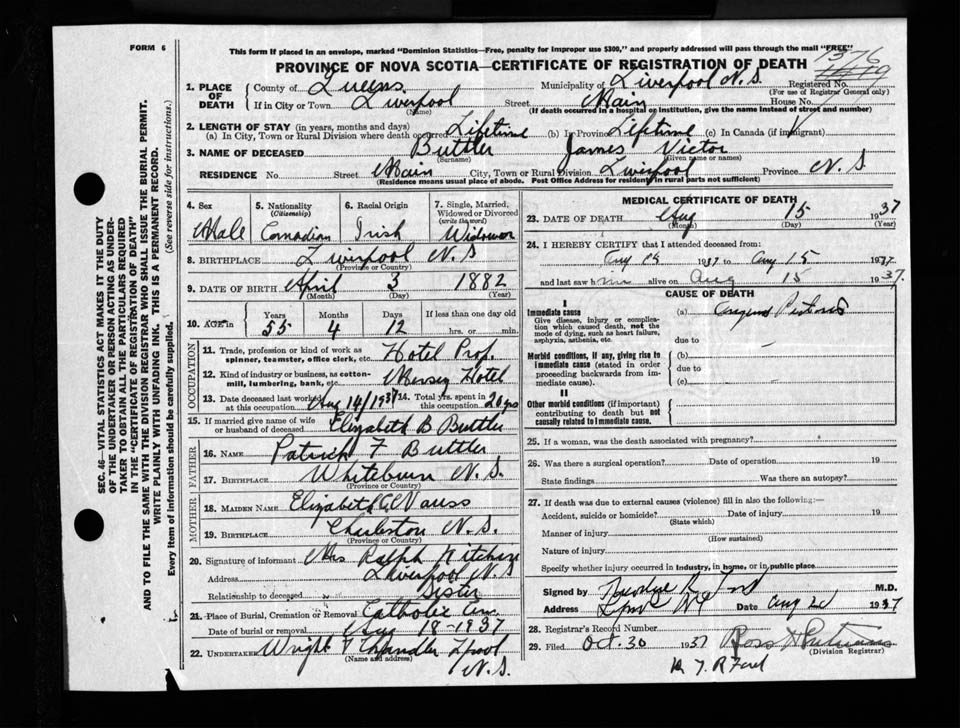 FORM 6
This form if placed in an envelope, marked "Dominion Statistics—Free, penalty for improper use $300," and properly addressed will pass through the mail "FREE"
1376
PROVINCE OF NOVA SCOTIA—CERTIFICATE OF REGISTRATION OF DEATH
1. PLACE OF DEATH
County of Queens Municipality of Liverpool N.S. Registered No.
(For use of Registrar General only)
If in City or Town Liverpool Street Main House No.
(Name) (If death occurred in a hospital or institution, give the name instead of street and number)
2. LENGTH OF STAY (in years, months and days)
(a) In City, Town or Rural Division where death occurred Lifetime (b) In Province Lifetime (c) In Canada (if immigrant)
3. NAME OF DECEASED Buttler James Victor
(Surname) (Given name or names)
RESIDENCE No. Street Main City, Town or Rural Division Liverpool Province N.S
(Residence means usual place of abode. Post Office Address for residents in rural parts not sufficient)
4. Sex Male
5. Nationality (Citizenship) Canadian
6. Racial Origin Irish
7. Single, Married, Widowed or Divorced (write the word) Widower
8. BIRTHPLACE Liverpool N.S
(Province or Country)
9. DATE OF BIRTH April 3 1882
(Month) (Day) (Year)
10. AGE in Years 55 Months 4 Days 12 If less than one day old
hrs. or min.
OCCUPATION
11. Trade, profession or kind of work as spinner, teamster, office clerk, etc. Hotel Prop.
12. Kind of industry or business, as cotton-mill, lumbering, bank, etc. Mersey Hotel
13. Date deceased last worked at this occupation Aug 14/1937 14. Total yrs. spent in this occupation 20 yrs
15. If married give name of wife or husband of deceased Elizabeth B Buttler
FATHER
16. NAME Patrick F Buttler
17. BIRTHPLACE Whiteburn N.S.
(Province or Country)
MOTHER
18. MAIDEN NAME Elizabeth
19. BIRTHPLACE Charleston N.S.
(Province or Country)
20. Signature of informant Mrs Ralph
Address Liverpool N.S
Relationship to deceased Sister
21. Place of Burial, Cremation or Removal Catholic Cem
Date of burial or removal Aug 18-1937
22. UNDERTAKER Wright & Chandler L'pool
(Name and address) N.S.
MEDICAL CERTIFICATE OF DEATH
23. DATE OF DEATH Aug 15 1937
(Month) (Day) (Year)
24. I HEREBY CERTIFY that I attended deceased from:
Aug 1937 to Aug 15 1937
and last saw him alive on Aug 15 1937.
CAUSE OF DEATH
I
Immediate cause
Give disease, injury or complication which caused death, not the mode of dying, such as heart failure, asphyxia, asthenia, etc.
(a) Angina Pectoris
due to
Morbid conditions, if any, giving rise to immediate cause (stated in order proceeding backwards from immediate cause).
(b)
due to
(c)
II
Other morbid conditions (if important) contributing to death but not causally related to immediate cause.
25. If a woman, was the death associated with pregnancy?
26. Was there a surgical operation? Date of operation 19
State findings Was there an autopsy?
27. If death was due to external causes (violence) fill in also the following:—
Accident, suicide or homicide? Date of injury 19
(State which)
Manner of injury
(How sustained)
Nature of injury
Specify whether injury occurred in industry, in home, or in public place
Signed by M.D.
Address Date Aug 1937
28. Registrar's Record Number
29. Filed Oct. 30 1937 Ross H
(Division Registrar)
SEC. 46—VITAL STATISTICS ACT MAKES IT THE DUTY
OF THE UNDERTAKER OR PERSON ACTING AS UNDER-
TAKER TO OBTAIN ALL THE PARTICULARS REQUIRED
IN THE "CERTIFICATE OF REGISTRATION OF DEATH"
AND TO FILE THE SAME WITH THE DIVISION REGISTRAR WHO SHALL ISSUE THE BURIAL PERMIT.
WRITE PLAINLY WITH UNFADING INK. THIS IS A PERMANENT RECORD.
Every item of information should be carefully supplied. (See reverse side for instructions.)